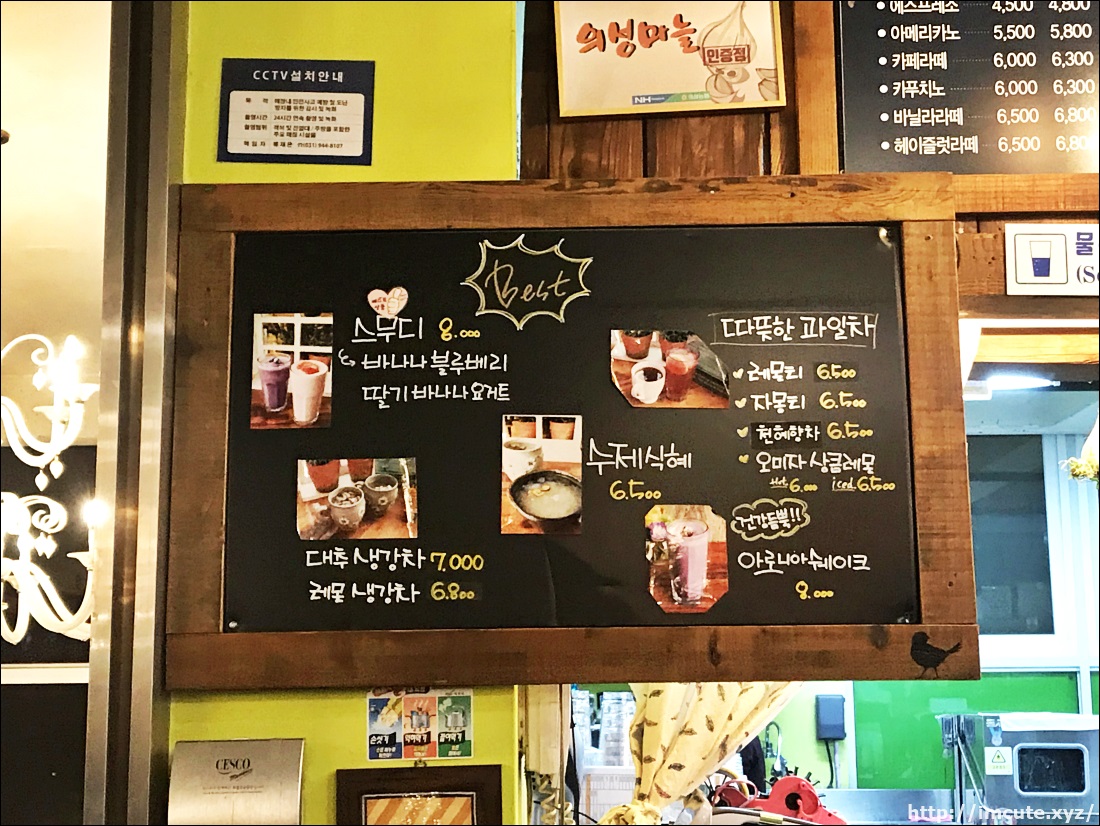 에스프레소 4,500 4,800
아메리카노 5,500 5,800
카페라떼 6,000 6,300
카푸치노 6,000 6,300
바닐라라떼 6,500 6,800
헤이즐럿라떼 6,500 6,800
의성마늘
인증점
NH
CCTV설치안내
목 적
촬영시간 : 24시간 연속 촬영 및 녹화
촬영범위
책 임 자
물
Best
스무디 8.000
바나나 블루베리
딸기 바나나 요거트
따뜻한 과일차
레몬티 6.500
자몽티 6.500
천혜향차 6.500
오미자 상큼레몬
Hot 6.000 iced 6.500
수제식혜
6.500
건강듬뿍!!
아로니아쉐이크
8.000
대추 생강차 7,000
레몬 생강차 6.800
손씻기
익혀먹기
끓여먹기
CESCO
http://imcute.xyz/